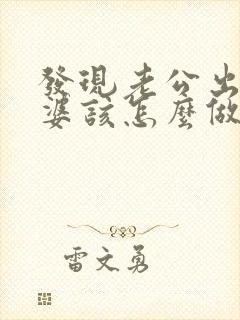 發現老公出
婆該怎麼做
雷文勇